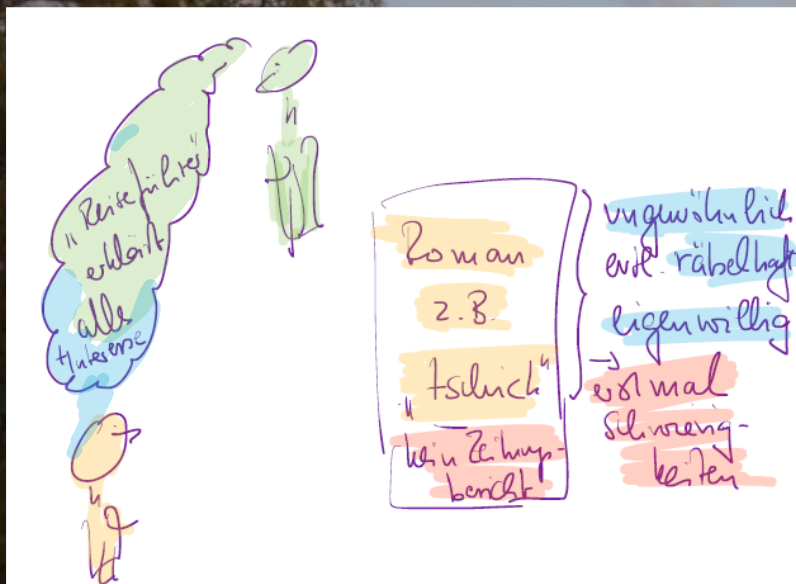 "Reiseführer"
erklärt
alles
+Interesse
Roman
z.B.
"tschick"
kein Zeitungs-
bericht
ungewöhnlich
evtl. räbelhaft
eigenwillig
→ erstmal
Schwierig-
keiten